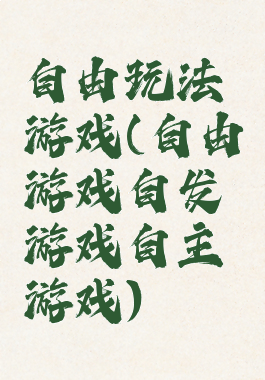 自由玩法
游戏(自由
游戏自发
游戏自主
游戏)